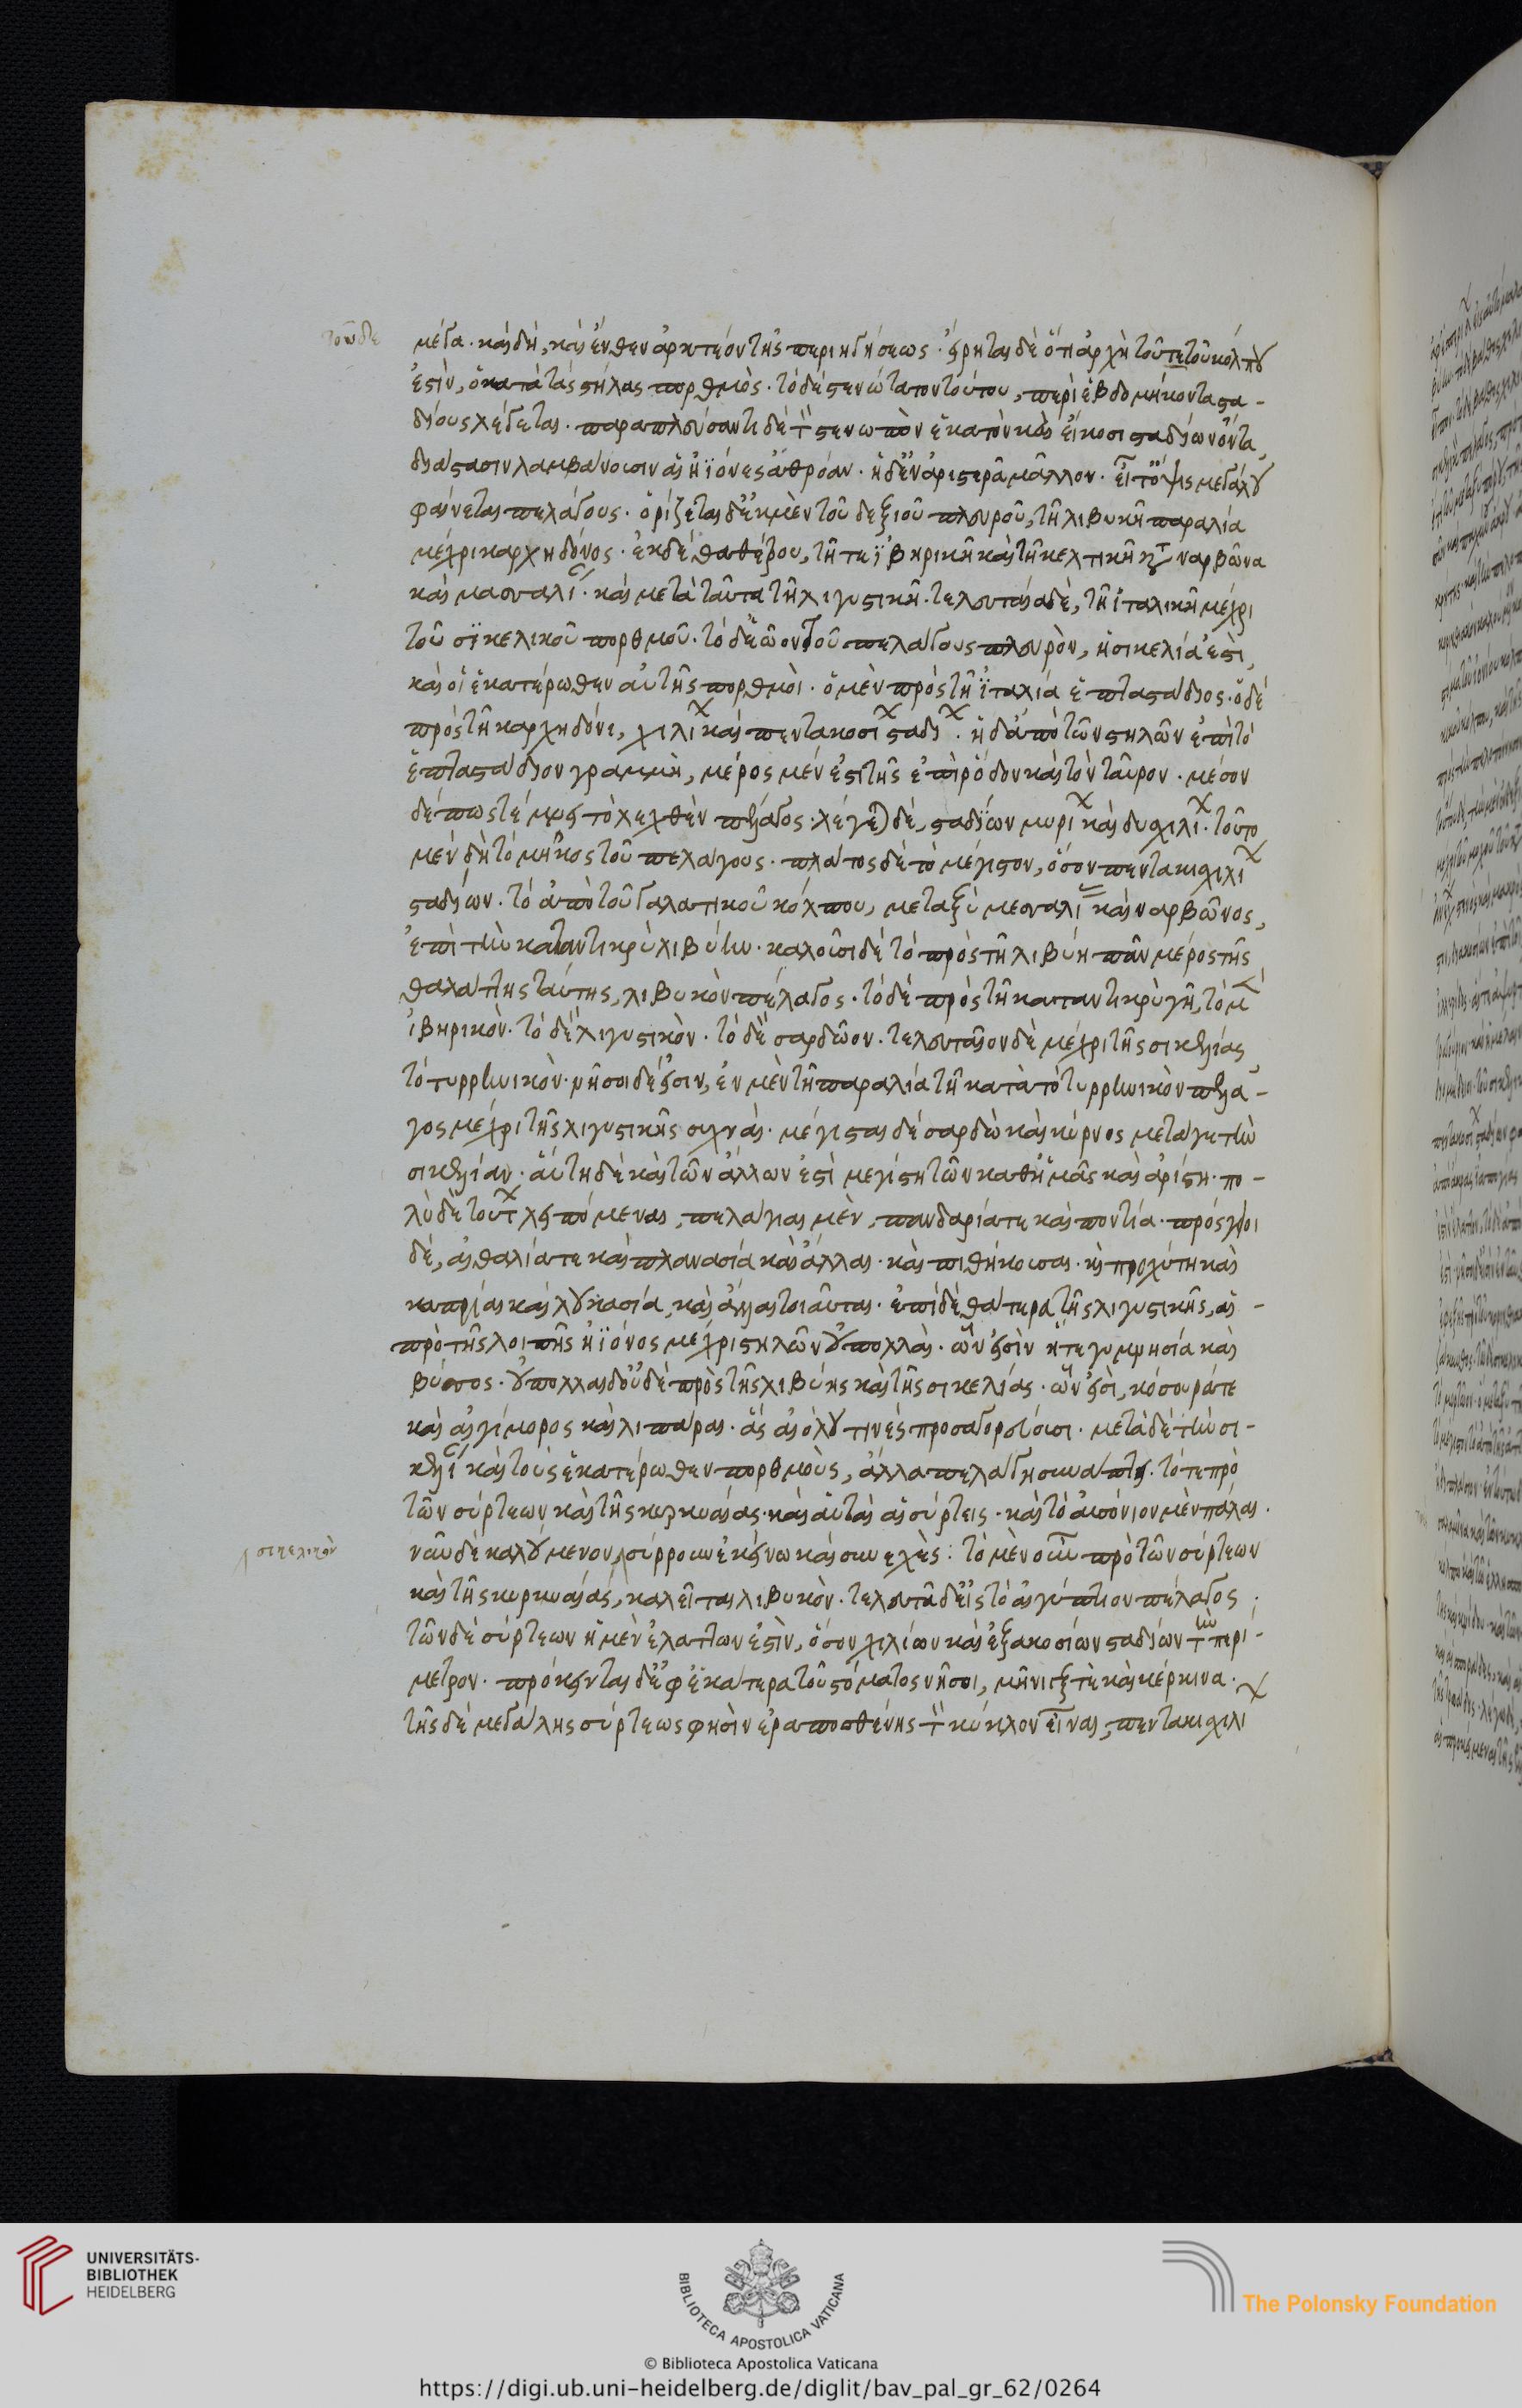 τοῦδε
μέγα· καὶ δὴ, καὶ ἔνθεν ἀρκτέον τῆς περιηγήσεως· εἴρηται δὲ ὅτι ἀρχὴ τοῦτε τοῦ κόλπου
ἐστὶν, ὁ κατὰ τὰς στήλας πορθμός· τὸ δὲ στενώτατον τούτου, περὶ ἑβδομήκοντα στα-
δίους λέγεται· παραπλεύσαντι δὲ τὸν στενωπὸν ἑκατὸν καὶ εἴκοσι σταδίων ὄντα,
διάστασιν λαμβάνουσιν αἱ ἠϊόνες ἀθρόαν· ἡ δ' ἐν ἀριστερᾷ μᾶλλον· εἶτ' ὄψις μεγάλου
φαίνεται πελάγους· ὁρίζεται δ' ἐκ μὲν τοῦ δεξιοῦ πλευροῦ, τῇ λιβυκῇ παραλία
μέχρι καρχηδόνος· ἐκ δὲ θατέρου, τῇ τε ἰβηρικῇ καὶ τῇ κελτικῇ κατὰ ναρβῶνα
καὶ μασσαλί· καὶ μετὰ ταῦτα τῇ λιγυστικῇ· τελευταία δὲ, τῇ ἰταλικῇ μέχρι
τοῦ σϊκελικοῦ πορθμοῦ· τὸ δ' ἑῶον τοῦ πελάγους πλευρὸν, ἡ σικελία ἐστὶ,
καὶ οἱ ἑκατέρωθεν αὐτῆς πορθμοὶ· ὁ μὲν πρὸς τῇ ἰταλία ἑπταστάδιος· ὁ δὲ
πρὸς τῇ καρχηδόνι, χιλί καὶ πεντακοσί σταδί· ἡ δ' ἀπὸ τῶν στηλῶν ἐπὶ τὸ
ἑπταστάδιον γραμμὴ, μέρος μέν ἐστι τῆς ἐπὶ ῥόδον καὶ τὸν ταῦρον· μέσον
δέ πως τέμνει τὸ λεχθὲν πέλαγος· λέγεται δὲ, σταδίων μυρί καὶ δισχιλί· τοῦτο
μὲν δὴ τὸ μῆκος τοῦ πελάγους· πλάτος δὲ τὸ μέγιστον, ὅσον πεντακισχιλί
σταδίων· τὸ ἀπὸ τοῦ γαλατικοῦ κόλπου, μεταξὺ μεσσαλί καὶ ναρβῶνος,
ἐπὶ τὴν καταντικρὺ λιβύην· καλοῦσι δὲ τὸ πρὸς τῇ λιβύη πᾶν μέρος τῆς
θαλάττης ταύτης, λιβυκὸν πέλαγος· τὸ δὲ πρὸς τῇ καταντικρὺ γῇ, τὸ μὲν
ἰβηρικὸν· τὸ δὲ λιγυστικὸν· τὸ δὲ σαρδῶον· τελευταῖον δὲ μέχρι τῆς σικελίας
τὸ τυρρηνικὸν· νῆσοι δέ εἰσιν, ἐν μὲν τῇ παραλία τῇ κατὰ τὸ τυρρηνικὸν πέλα-
γος μέχρι τῆς λιγυστικῆς συχναί· μέγισται δὲ σαρδὼ καὶ κύρνος μετά γε τὴν
σικελίαν· αὕτη δὲ καὶ τῶν ἄλλων ἐστὶ μεγίστη τῶν καθ' ἡμᾶς καὶ ἀρίστη· πο-
λὺ δὲ τούτ λειπόμεναι, πελάγιαι μὲν, πανδαρία τε καὶ ποντία· πρόσγειοι
δὲ, αἰθαλία τε καὶ πλανασία καὶ ἄλλαι· καὶ πιθήκουσαι· καὶ προχύτη καὶ
καπρίαι καὶ λουκασία, καὶ ἄλλαι τοιαῦται· ἐπὶ δὲ θάτερα τῆς λιγυστικῆς, αἱ-
πρὸ τῆς λοιπῆς ἠϊόνος μέχρι στηλῶν οὐ πολλαί· ὧν εἰσὶν ἥ τε γυμνησία καὶ
βύσσος· οὐ πολλαὶ δ' οὐδὲ πρὸς τῆς λιβύης καὶ τῆς σικελίας· ὧν εἰσὶ, κόσουρά τε
καὶ αἰγίμορος καὶ λιπάραι· ἃς αἰόλου τινὲς προσαγορεύουσι· μετὰ δὲ τὴν σι-
κελί καὶ τοὺς ἑκατέρωθεν πορθμοὺς, ἄλλα πελάγη συνάπτει· τό τε πρὸ
τῶν σύρτεων καὶ τῆς κυρηναίας· καὶ αὐταὶ αἱ σύρτεις· καὶ τὸ αὐσόνιον μὲν πάλαι·
σικελικὸν
νῦν δὲ καλούμενον, σύρρουν ἐκείνω καὶ συνεχές: τὸ μὲν οὖν πρὸ τῶν σύρτεων
καὶ τῆς κυρηναίας, καλεῖται λιβυκὸν· τελευτᾶ δ' εἰς τὸ αἰγύπτιον πέλαγος·
τῶν δὲ σύρτεων ἡ μὲν ἐλάττων ἐστὶν, ὅσον χιλίων καὶ ἑξακοσίων σταδίων τὴν περί-
μετρον· πρόκεινται δ' ἐφ' ἑκάτερα τοῦ στόματος νῆσοι, μῆνιγξ τὲ καὶ κέρκινα·
τῆς δὲ μεγάλης σύρτεως φησὶν ἐρατοσθένης τὸν κύκλον εἶναι, πεντακισχιλί
UNIVERSITÄTS-
BIBLIOTHEK
HEIDELBERG
BIBLIOTECA APOSTOLICA VATICANA
The Polonsky Foundation
© Biblioteca Apostolica Vaticana
https://digi.ub.uni-heidelberg.de/diglit/bav_pal_gr_62/0264